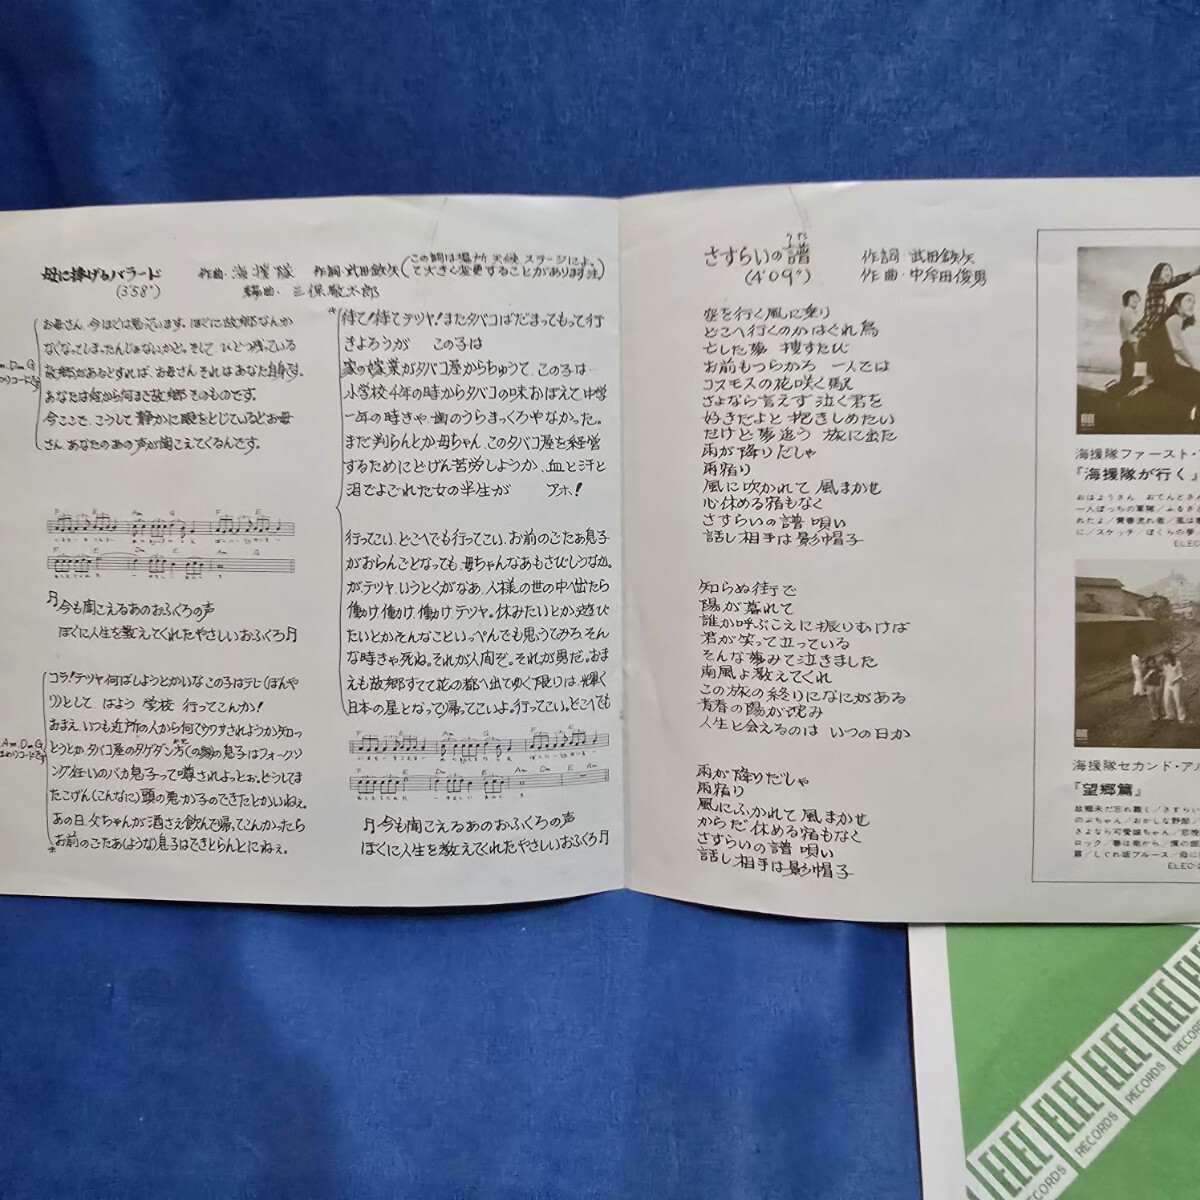 母に捧げるバラード
(3'58")
作曲・海援隊 作詞・武田鉄矢
編曲・三保敬太郎
(この詞は場所、天候、ステージによっ
て大きく変更することがあります。注)
お母さん、今ぼくは思っています。ぼくに故郷なんか
なくなってしまったんじゃないかと。そして、ひとつ残っている
故郷があるとすれば、お母さん、それはあなた自身です。
あなたは何から何まで故郷そのものです。
今ここで、こうして静かに眼をとじているとお母
さん、あなたのあの声が聞こえてくるんです。
♫今も聞こえるあのおふくろの声
ぼくに人生を教えてくれたやさしいおふくろ♫
コラ!テツヤ何ばしようとかいなこの子はテレ(ぼんや
り)として はよう 学校 行ってこんか!
おまえ、いつも近所の人から何てウワサされようか知っ
とうとか。タバコ屋のタケダン
の息子はフォークソ
ング狂いのバカ息子って噂されよっとぉ。どうしてま
たこげん(こんなに)頭の悪か子のできたとかいねぇ。
あの日、父ちゃんが酒さえ飲んで帰ってこんかったら
お前のごたあ(ような)息子はできとらんとにねぇ。
待て!待てテツヤ!またタバコばだまってもって行
きよろうが この子は
家の家業がタバコ屋からちゅうて、この子は
小学校4年の時からタバコの味おぼえて、中学
一年の時きゃ、歯のうらまっくろやなかった。
まだ判らんとか母ちゃん、このタバコ屋を経営
するためにどげん苦労しようか、血と汗と
泪でよごれた女の半生が アホ!
行ってこい、どこへでも行ってこい。お前のごたあ息子
がおらんごとなっても、母ちゃんなあもさびしうなか。
が、テツヤ、いうとくがなあ、人様の世の中へ出たら
働け、働け、働け、テツヤ。休みたいとか遊び
たいとかそんなこといっぺんでも思うてみろ。そん
な時きゃ死ね。それが人間ぞ。それが男だ。おま
えも故郷すてて花の都へ出てゆく限りは、輝く
日本の星となって帰ってこいよ。行ってこい。どこへでも
♫今も聞こえるあのおふくろの声
ぼくに人生を教えてくれたやさしいおふくろ♫
さすらいの譜
うた
(4'09")
作詞・武田鉄矢
作曲・中牟田俊男
空を行く風に乗り
どこへ行くのかはぐれ鳥
亡した夢 捜すたび
お前もつらかろ 一人では
コスモスの花咲く駅
さよなら言えず 泣く君を
好きだよと 抱きしめたい
だけど夢追う 旅に出た
雨が降りだしゃ
雨宿り
風に吹かれて 風まかせ
心休める宿もなく
さすらいの譜 唄い
話し相手は影帽子
知らぬ街で
陽が暮れて
誰か呼ぶこえに振りむけば
君が笑って立っている
そんな夢みて泣きました
南風よ教えてくれ
この旅の終りになにがある
青春の陽が沈み
人生と会えるのは いつの日か
雨が降りだしゃ
雨宿り
風にふかれて 風まかせ
からだ休める宿もなく
さすらいの譜 唄い
話し相手は影帽子
海援隊ファースト・
『海援隊が行く』
おはようさん おてんとさん
一人ぼっちの軍隊/ふるさと
れたよ/青春流れ者/風は
に/スケッチ/ぼくらの夢
ELEC-
海援隊セカンド・アル
『望郷篇』
故郷未だ忘れ難く/さすらい
のぶちゃん/おかしな野郎
さよなら可愛娘ちゃん/
ロック/春は南から/僕の
篇/しぐれ坂ブルース/母に
ELEC-2
ELEC
RECORDS
ELEC
RECORDS
ELEC
RECORDS
ELEC
RECORDS